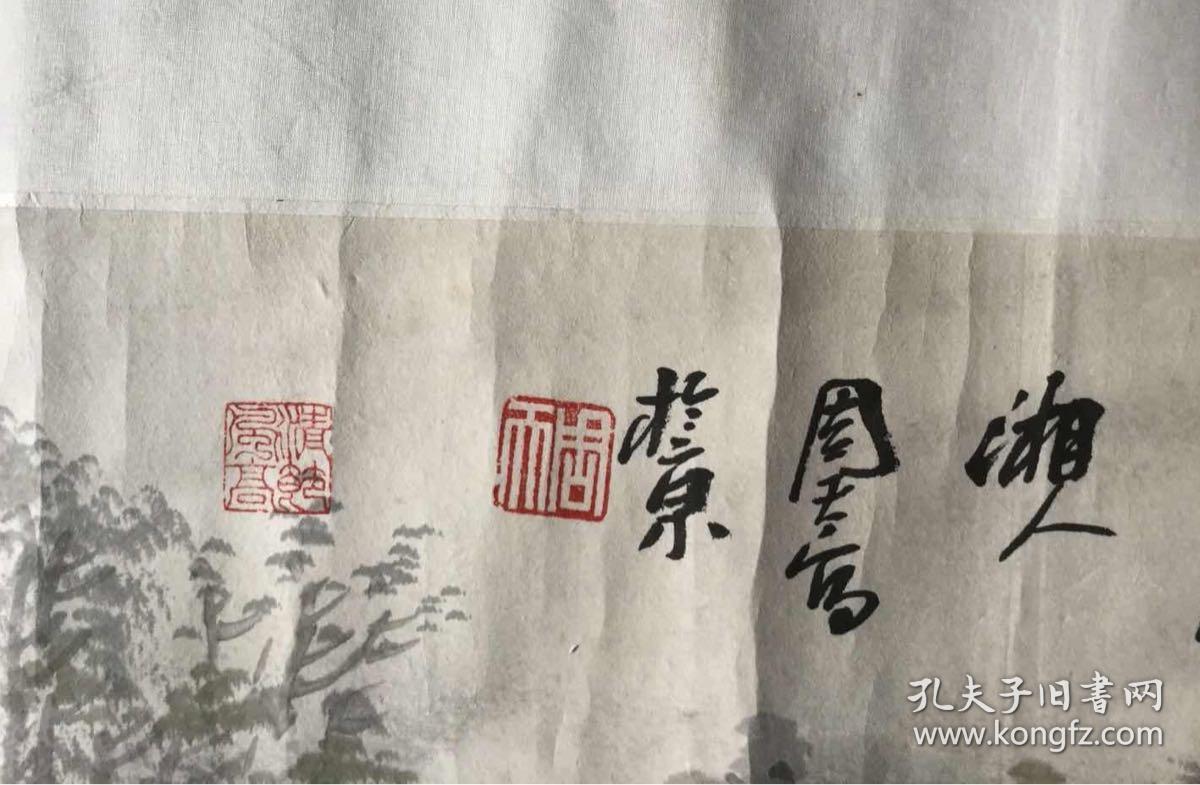 湘人
周
於京
周
清
風高
孔夫子旧書网
www.kongfz.com